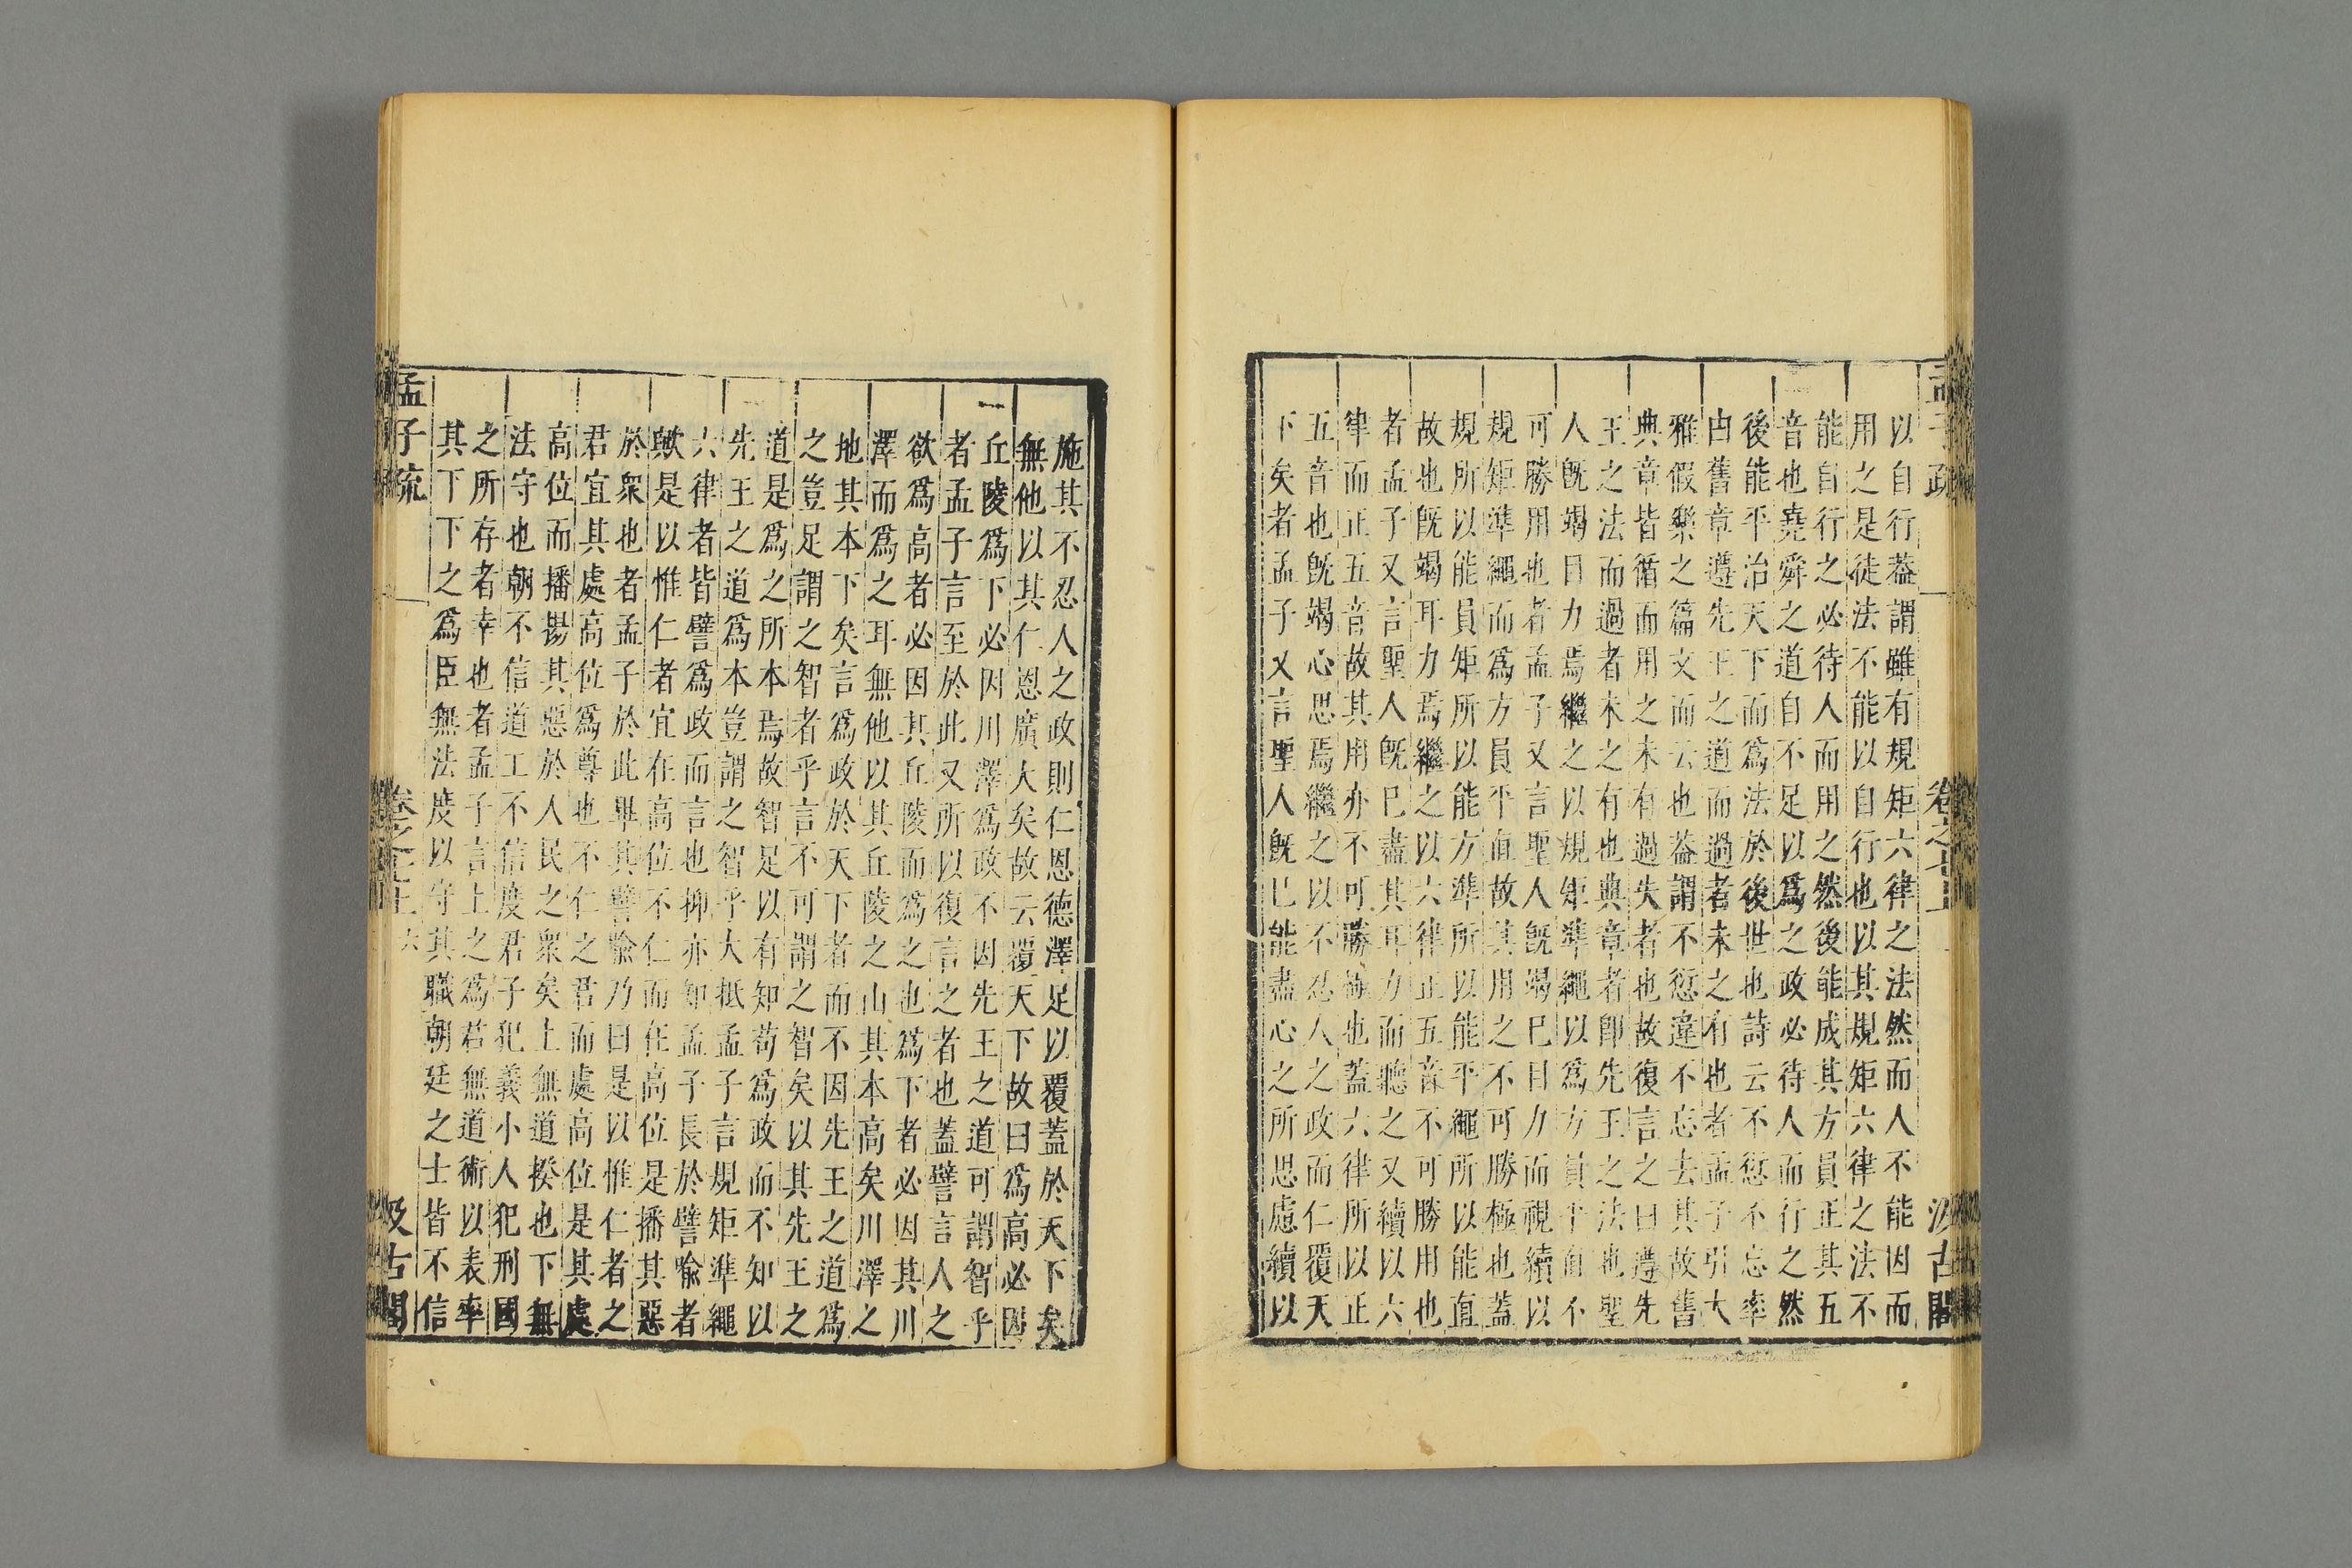 孟子疏
卷之七上
汲古閣
以自行葢謂雖有規矩六律之法然而人不能因而
用之是徒法不能以自行也以其規矩六律之法不
能自行之必待人而用之然後能成其方員正其五
音也堯舜之道自不足以爲之政必待人而行之然
後能平治天下而爲法於後世也詩云不愆不忘率
由舊章遵先王之道而過者未之有也者孟子引大
雅假樂之篇文而云也葢謂不愆違不忘去其故舊
典章皆循而用之未有過失者也故復言之曰遵先
王之法而過者未之有也典章者卽先王之法也聖
人旣竭目力焉繼之以規矩準繩以爲方員平直不
可勝用也者孟子又言聖人旣竭已目力而視續以
規矩準繩而爲方員平直故其用之不可勝極也蓋
規所以能員矩所以能方準所以能平繩所以能直
故也旣竭耳力焉繼之以六律正五音不可勝用也
者孟子又言聖人旣已盡其耳力而聽之又續以六
律而正五音故其用亦不可勝極也蓋六律所以正
五音也旣竭心思焉繼之以不忍人之政而仁覆天
下矣者孟子又言聖人旣已能盡心之所思慮續以
施其不忍人之政則仁恩德澤足以覆蓋於天下矣
無他以其仁恩廣大矣故云覆天下故曰爲高必因
丘陵爲下必因川澤爲政不因先王之道可謂智乎
者孟子言至於此又所以復言之者也蓋譬言人之
欲爲高者必因其丘陵而爲之也爲下者必因其川
澤而爲之耳無他以其丘陵之山其本高矣川澤之
地其本下矣言爲政於天下者而不因先王之道爲
之豈足謂之智者乎言不可謂之智矣以其先王之
道是爲之所本焉故智足以有知苟爲政而不知以
先王之道爲本豈謂之智乎大抵孟子言規矩準繩
六律者皆譬爲政而言也抑亦知孟子長於譬喻者
歟是以惟仁者宜在高位不仁而在高位是播其惡
於衆也者孟子於此畢其譬喻乃曰是以惟仁者之
君宜其處高位爲尊也不仁之君而處高位是其處
高位而播揚其惡於人民之衆矣上無道揆也下無
法守也朝不信道工不信度君子犯義小人犯刑國
之所存者幸也者孟子言上之爲君無道術以表率
其下下之爲臣無法度以守其職朝廷之士皆不信
孟子疏
卷之七上
六
汲古閣